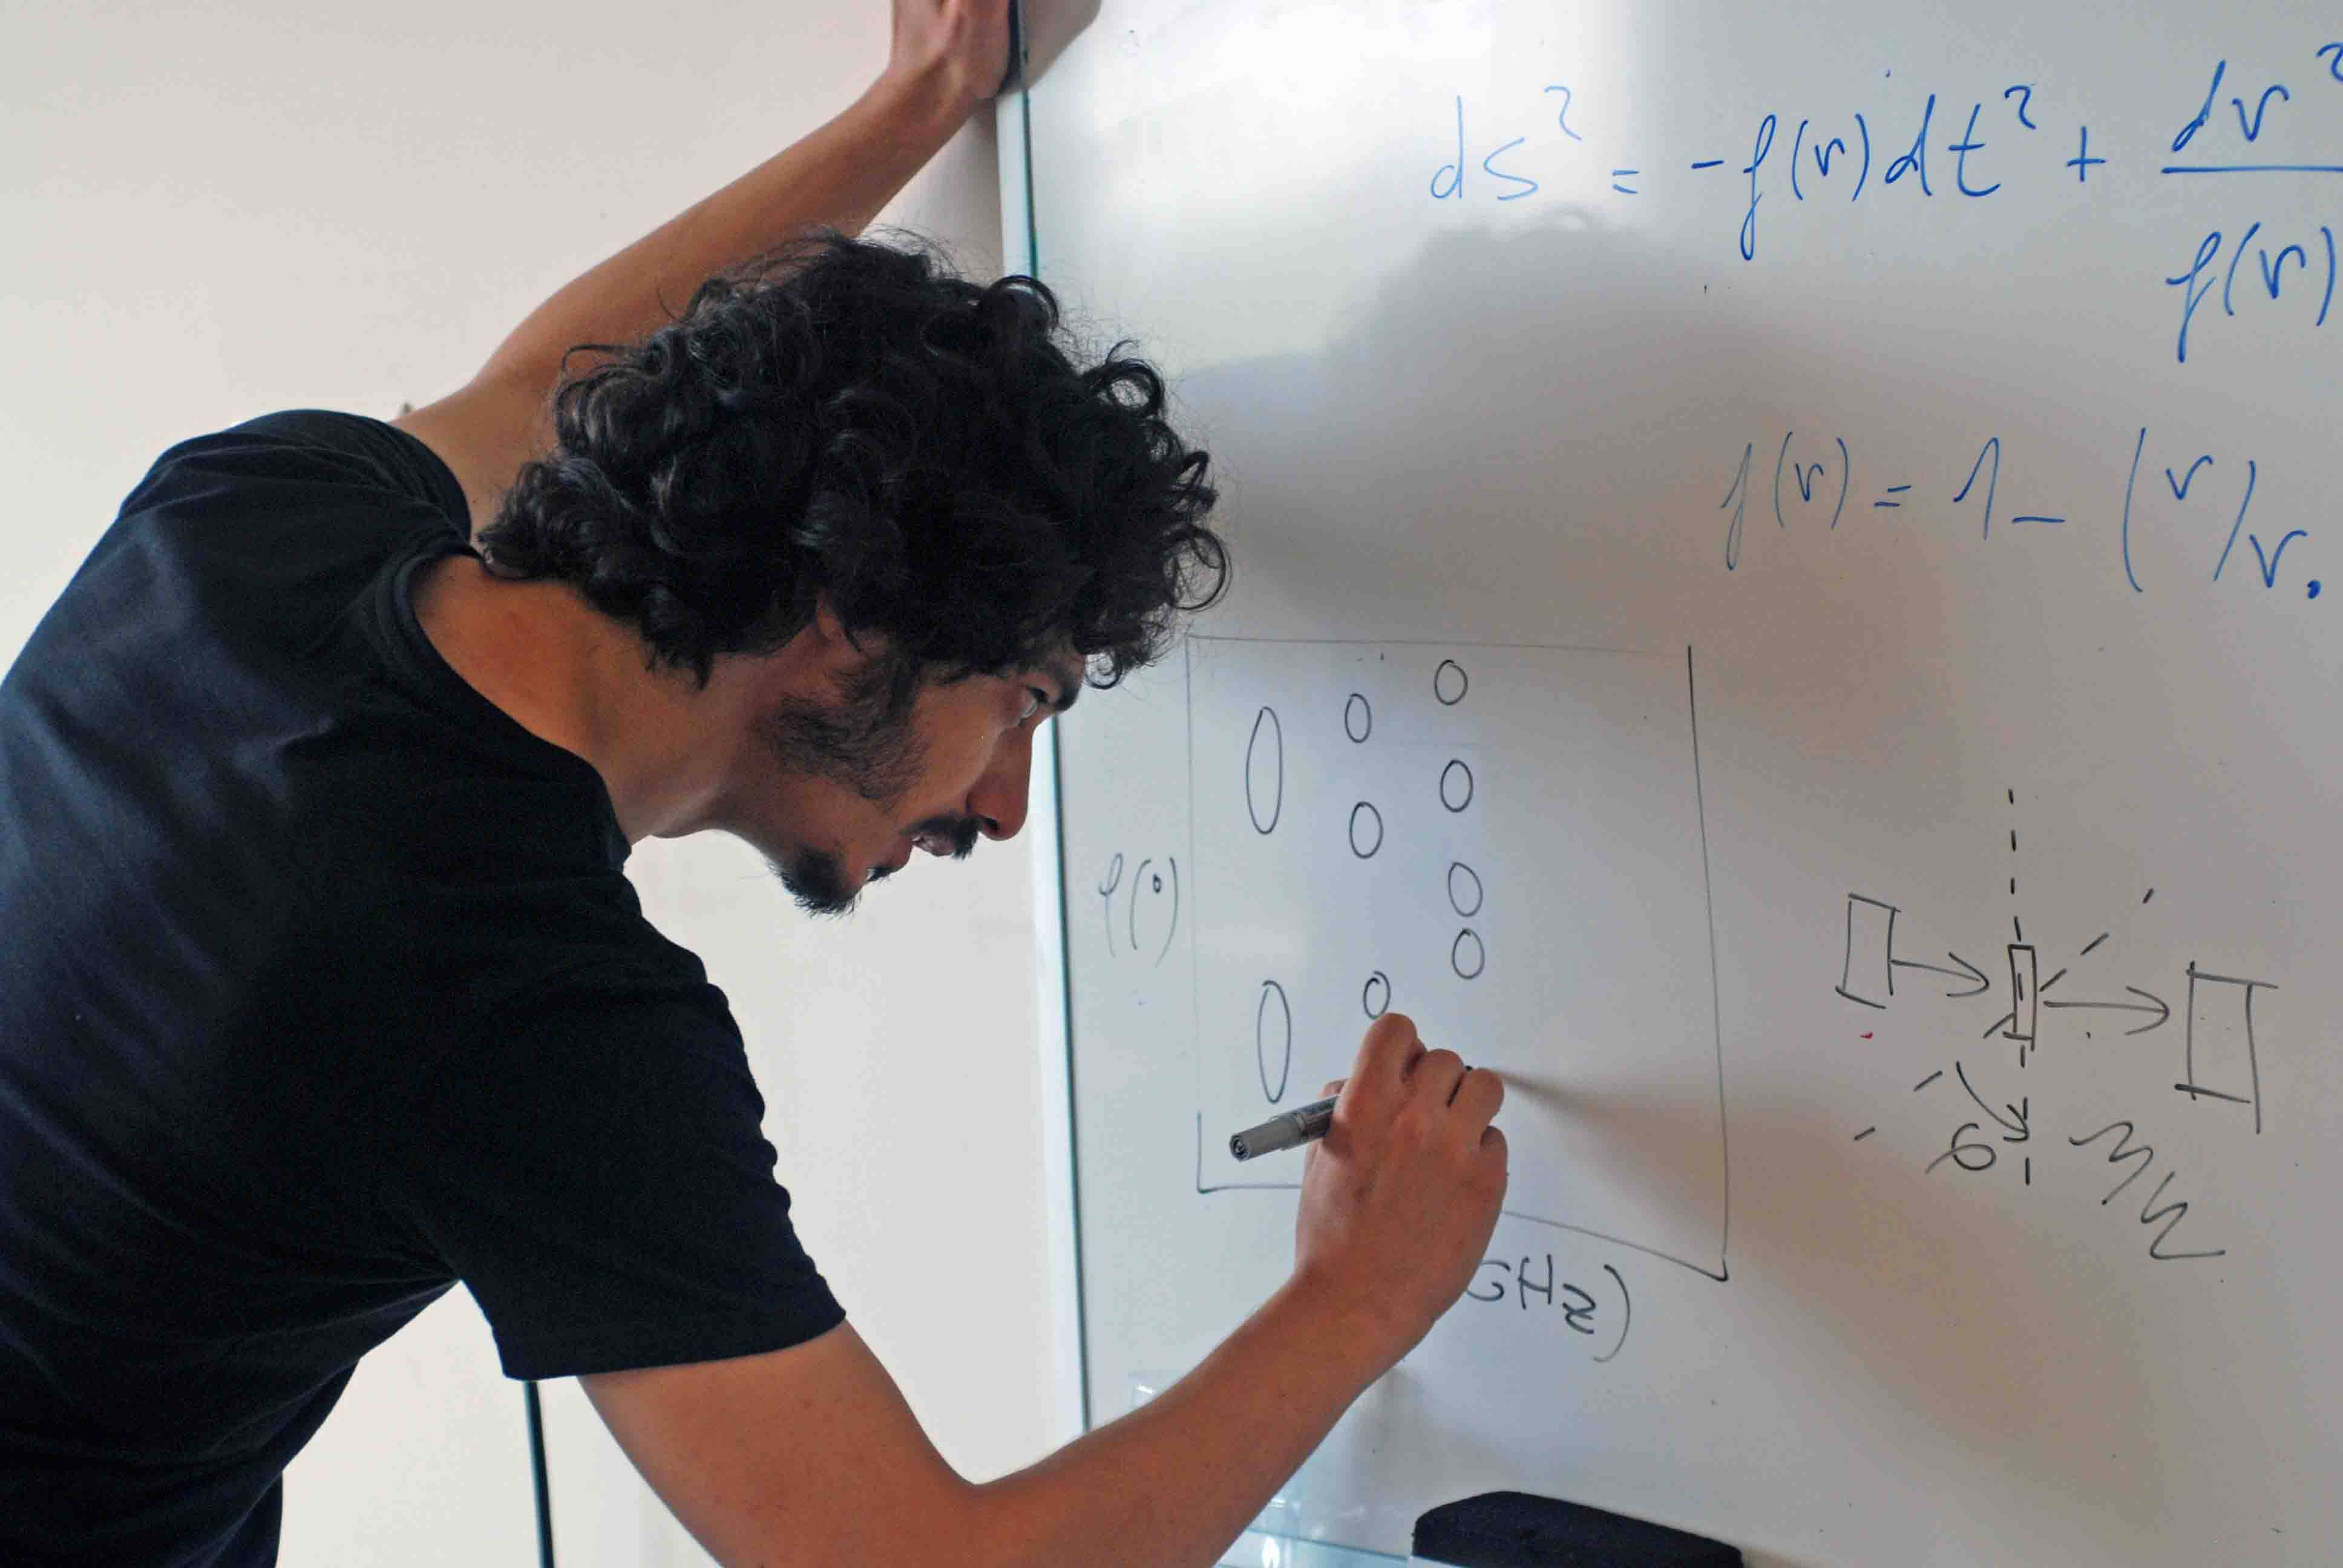 ds² = -f(r)dt² + dr²
f(r)
f(r) = 1 - (r/r.
(°)
GHz)